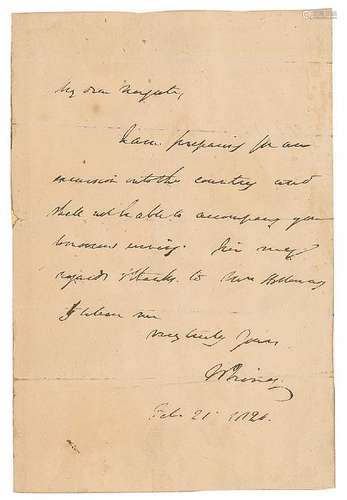 My dear
I am preparing for an
excursion into the country and
shall not be able to accompany you
tomorrow evening. Give my
regards & thanks to Mrs
& believe me
very truly yours
Feb. 21